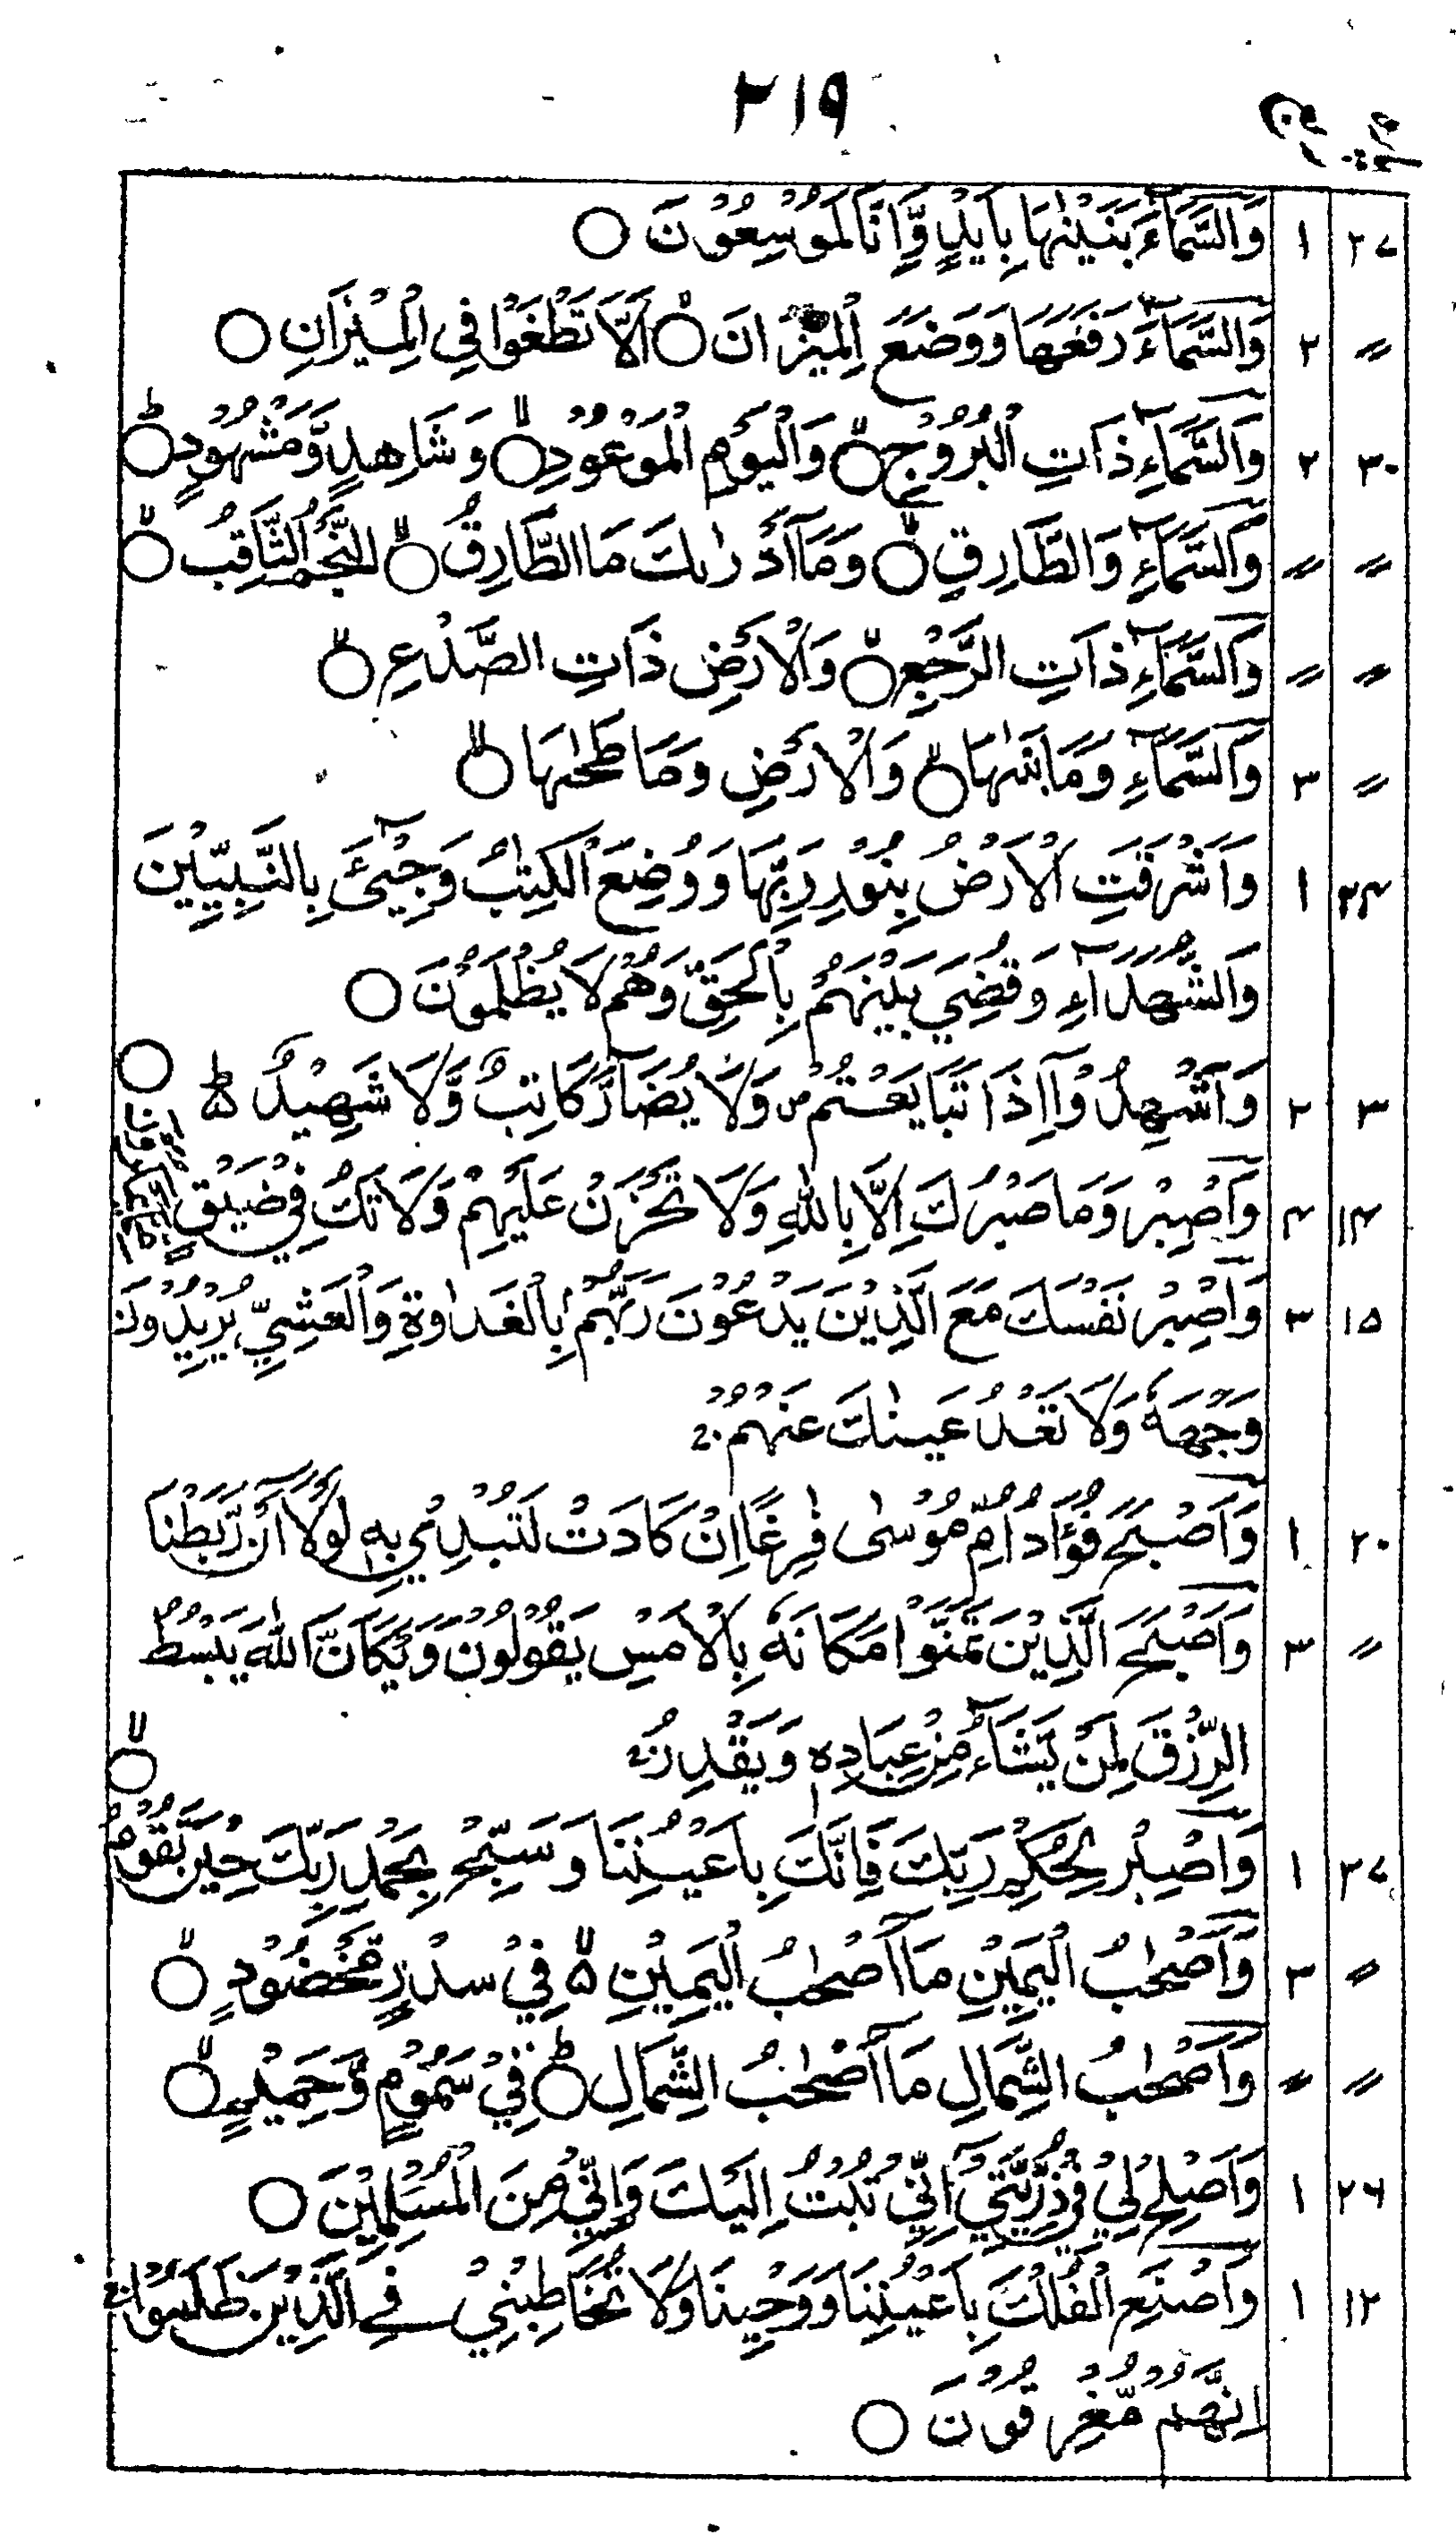 ٢١٩
٢٧ ١ وَالسَّمَآءَ بَنَيْنٰهَا بِاَيْىدٍ وَّاِنَّا لَمُوْسِعُوْنَ ○
〃 ٢ وَالسَّمَآءَ رَفَعَهَا وَوَضَعَ الْمِيْزَانَ ○ اَلَّا تَطْغَوْا فِى الْمِيْزَانِ ○
٣٠ ٢ وَالسَّمَآءِ ذَاتِ الْبُرُوْجِ ○ وَالْيَوْمِ الْمَوْعُوْدِ ○ وَشَاهِدٍ وَّمَشْهُوْدٍ ○
〃 〃 وَالسَّمَآءِ وَالطَّارِقِ ○ وَمَآ اَدْرٰىكَ مَا الطَّارِقُ ○ النَّجْمُ الثَّاقِبُ ○
〃 〃 وَالسَّمَآءِ ذَاتِ الرَّجْعِ ○ وَالْاَرْضِ ذَاتِ الصَّدْعِ ○
〃 ٣ وَالسَّمَآءِ وَمَا بَنٰىهَا ○ وَالْاَرْضِ وَمَا طَحٰىهَا ○
٢٤ ١ وَاَشْرَقَتِ الْاَرْضُ بِنُوْرِ رَبِّهَا وَوُضِعَ الْكِتٰبُ وَجِآيْءَ بِالنَّبِيّٖنَ
وَالشُّهَدَآءِ وَقُضِيَ بَيْنَهُمْ بِالْحَقِّ وَهُمْ لَا يُظْلَمُوْنَ ○
٣ ٢ وَاَشْهِدُوْٓا اِذَا تَبَايَعْتُمْ ص وَلَا يُضَآرَّ كَاتِبٌ وَّلَا شَهِيْدٌ ط
١٤ ٤ وَاصْبِرْ وَمَا صَبْرُكَ اِلَّا بِاللّٰهِ وَلَا تَحْزَنْ عَلَيْهِمْ وَلَا تَكُ فِيْ ضَيْقٍ مِّمَّا يَمْكُرُوْنَ ○
١٥ ٣ وَاصْبِرْ نَفْسَكَ مَعَ الَّذِيْنَ يَدْعُوْنَ رَبَّهُمْ بِالْغَدٰوةِ وَالْعَشِيِّ يُرِيْدُوْنَ
وَجْهَهٗ وَلَا تَعْدُ عَيْنٰكَ عَنْهُمْ ج
٢٠ ١ وَاَصْبَحَ فُؤَادُ اُمِّ مُوْسٰى فٰرِغًا اِنْ كَادَتْ لَتُبْدِيْ بِهٖ لَوْلَآ اَنْ رَّبَطْنَا
〃 ٣ وَاَصْبَحَ الَّذِيْنَ تَمَنَّوْا مَكَانَهٗ بِالْاَمْسِ يَقُوْلُوْنَ وَيْكَاَنَّ اللّٰهَ يَبْسُطُ
الرِّزْقَ لِمَنْ يَّشَآءُ مِنْ عِبَادِهٖ وَيَقْدِرُ ج
٢٧ ١ وَاصْبِرْ لِحُكْمِ رَبِّكَ فَاِنَّكَ بِاَعْيُنِنَا وَسَبِّحْ بِحَمْدِ رَبِّكَ حِيْنَ تَقُوْمُ ○
〃 ٣ وَاَصْحٰبُ الْيَمِيْنِ مَآ اَصْحٰبُ الْيَمِيْنِ ۵ فِيْ سِدْرٍ مَّخْضُوْدٍ ○
〃 〃 وَاَصْحٰبُ الشِّمَالِ مَآ اَصْحٰبُ الشِّمَالِ ○ فِيْ سَمُوْمٍ وَّحَمِيْمٍ ○
٢٦ ١ وَاَصْلِحْ لِيْ فِيْ ذُرِّيَّتِيْ اِنِّيْ تُبْتُ اِلَيْكَ وَاِنِّيْ مِنَ الْمُسْلِمِيْنَ ○
١٢ ١ وَاصْنَعِ الْفُلْكَ بِاَعْيُنِنَا وَوَحْيِنَا وَلَا تُخَاطِبْنِيْ فِي الَّذِيْنَ ظَلَمُوْا ج
اِنَّهُمْ مُّغْرَقُوْنَ ○